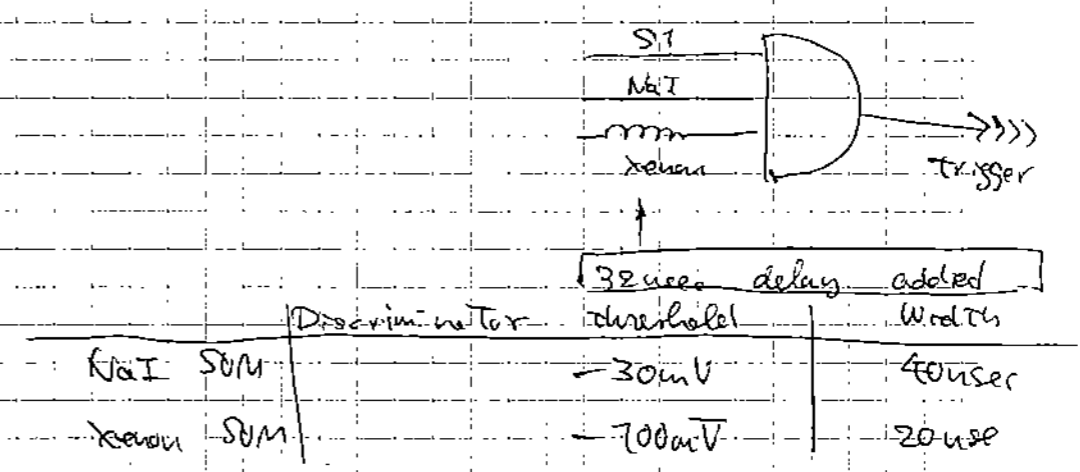 S1
NaI
xenon
Trigger
32nsec delay added
Discriminator threshold Width
NaI SUM -30mV 40nsec
xenon SUM -100mV 20nse